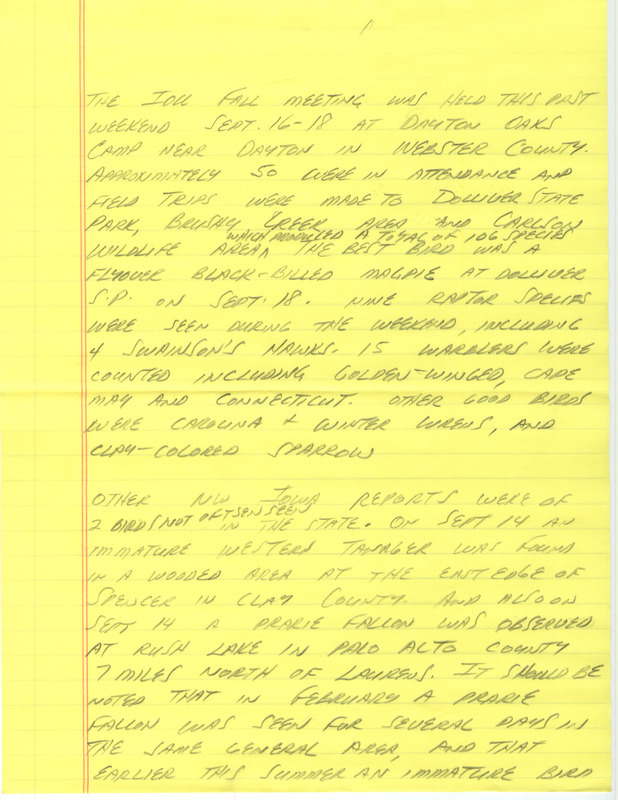 1
THE IOU FALL MEETING WAS HELD THIS PAST
WEEKEND SEPT. 16-18 AT DAYTON OAKS
CAMP NEAR DAYTON IN WEBSTER COUNTY.
APPROXIMTELY 50 WERE IN ATTENDANCE AND
FIELD TRIPS WERE MADE TO DOLLIVER STATE
PARK, BRUSHY CREEK AREA AND CARLSON
WHICH PRODUCED A TOTAL OF 106 SPECIES
WILDLIFE AREA, THE BEST BIRD WAS A
FLYOVER BLACK-BILLED MAGPIE AT DOLLIVER
S.P. ON SEPT. 18. NINE RAPTOR SPECIES
WERE SEEN DURING THE WEEKEND, INCLUDING
4 SWAINSON'S HAWKS. 15 WARBLERS WERE
COUNTED INCLUDING GOLDEN-WINGED, CAPE
MAY AND CONNECTICUT. OTHER GOOD BIRDS
WERE CAROLINA + WINTER WRENS, AND
CLAY-COLORED SPARROW
OTHER NW IOWA REPORTS WERE OF
2 BIRDS NOT OFTSEN SEEN IN THE STATE. ON SEPT 14 AN
IMMATURE WESTERN TANAGER WAS FOUND
IN A WOODED AREA AT THE EAST EDGE OF
SPENCER IN CLAY COUNTY. AND ALSO ON
SEPT 14 A PRARIE FALLON WAS OBSERVED
AT RUSH LAKE IN PALO ALTO COUNTY
7 MILES NORTH OF LAURENS. IT SHOULD BE
NOTED THAT IN FEBRUARY A PRARIE
FALLON WAS SEEN FOR SEVERAL DAYS IN
THE SAME GENERAL AREA, AND THAT
EARLIER THIS SUMMER AN IMMATURE BIRD